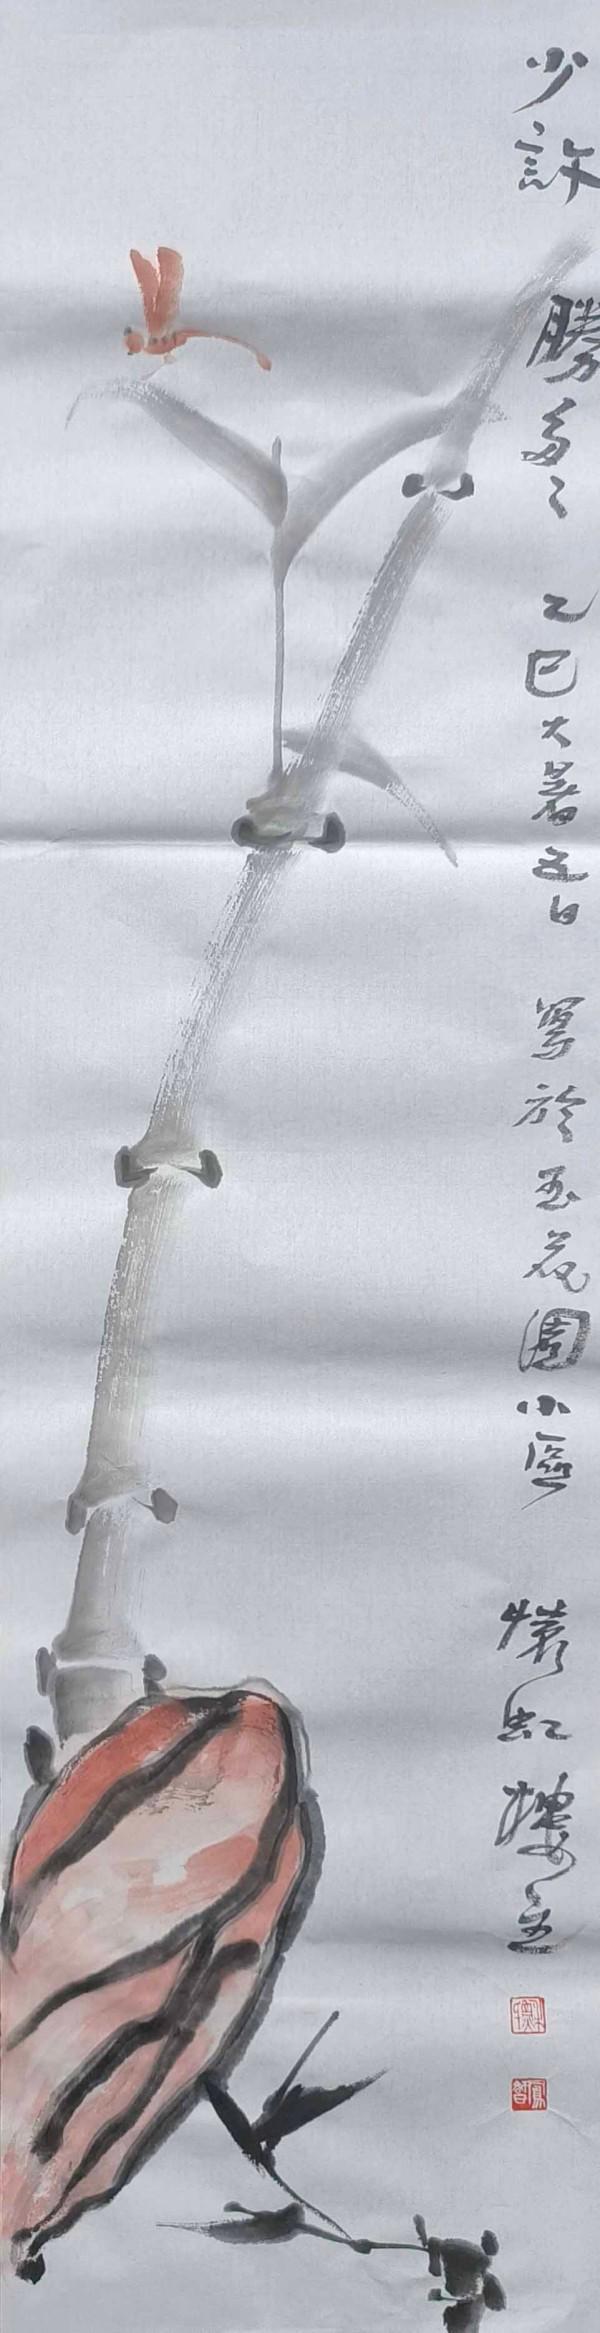 少許 勝多多 乙巳大暑之日 寫於玉花園小區 樓主